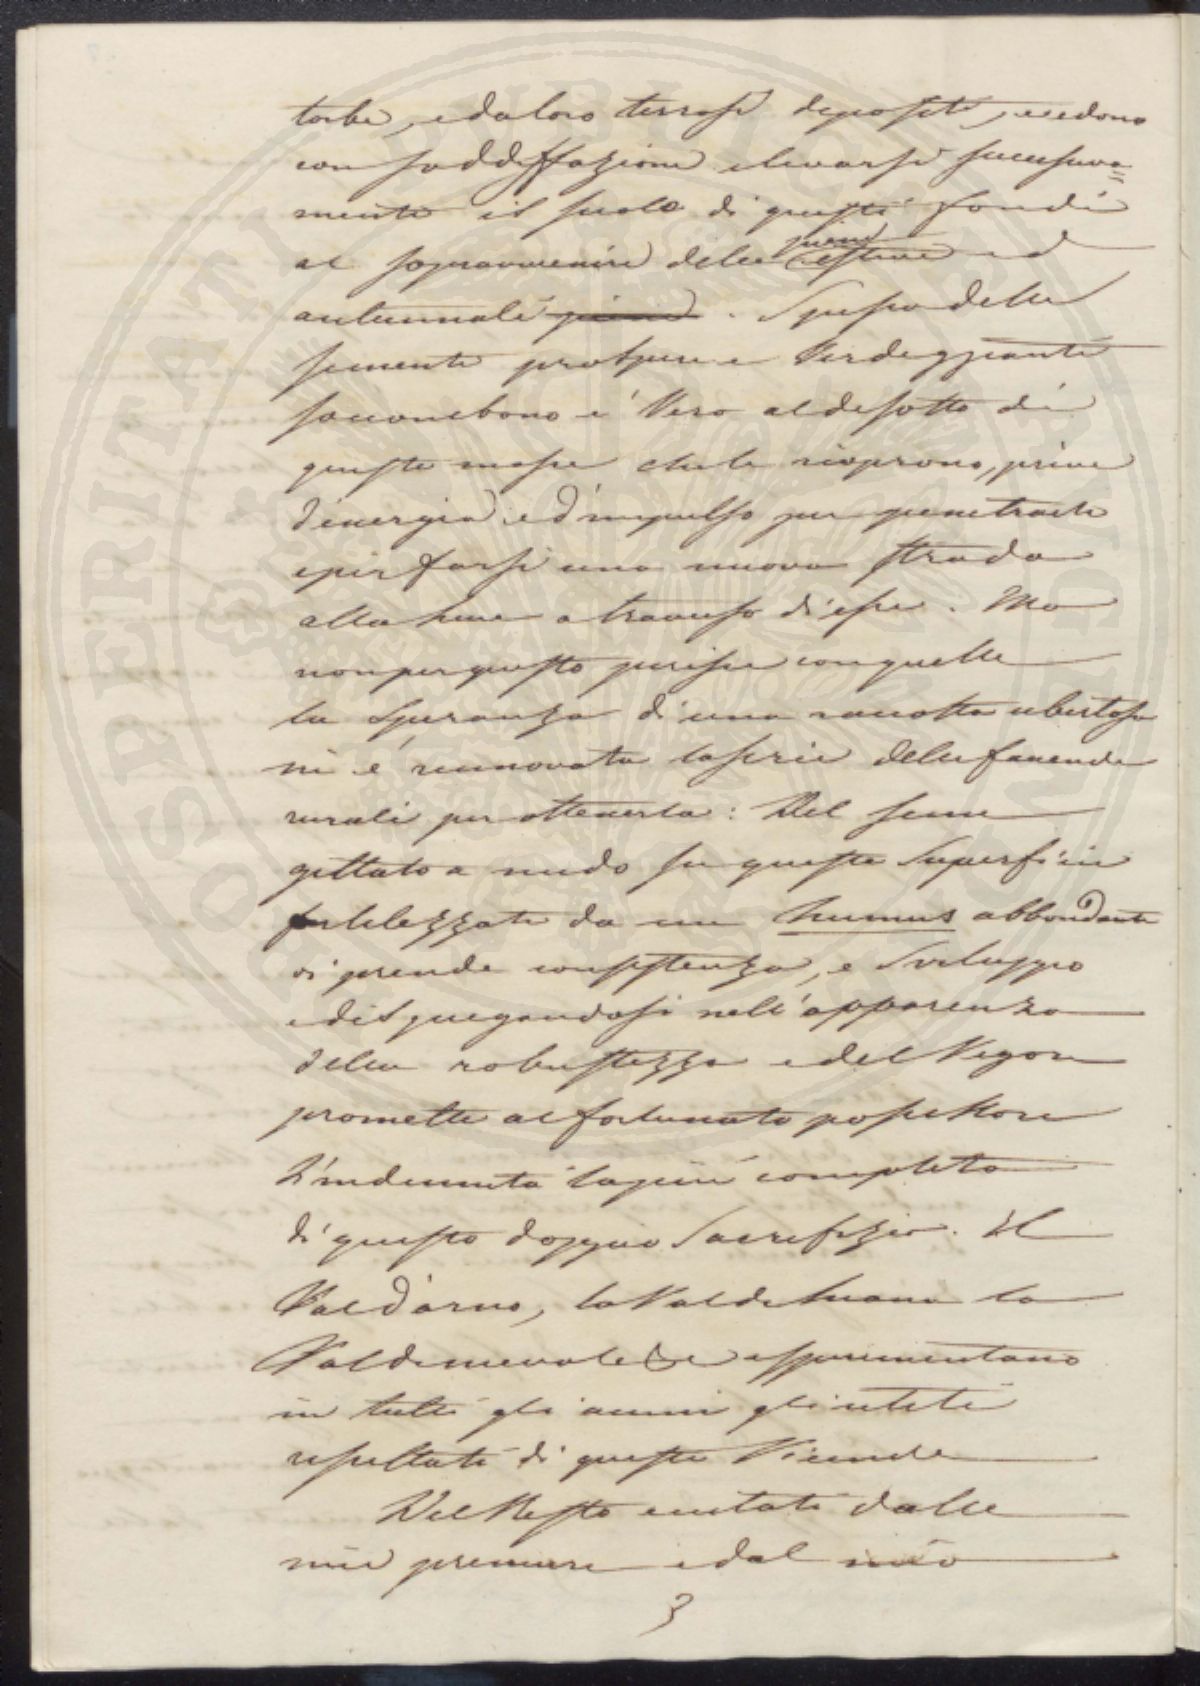 torbe, e da loro terrosi depositi, vedono
con soddisfazione elevarsi successiva=
mente il suolo di questi fondi
al sopravvenire delle piene estive ed
autunnali piene. Spesso delle
sementi prospere e Verdeggianti
soccombono è Vero al disotto di
queste masse che le ricoprono, prive
d'energia, e d'impulso per penetrarle
e per farsi una nuova strada
alla luce a traverso di esse. Ma
non per questo perisce con quelle
la Speranza di una raccolta ubertosa
nè è rinnovata la serie delle faccende
rurali per ottenerla: Del seme
gettato a nudo su queste Superficie
fertilizzate da un humus abbondante
vi prende consistenza, e Sviluppo
e dispiegandosi nell'apparenza
della robustezza e del Vigore
promette al fortunato possessore
L'indennità la più completa
di questo doppio Sacrifizio. Il
Valdarno, la Valdichiana la
Valdinievole &c esperimentano
in tutti gli anni gli utili
resultati di queste Vicende
Del Resto eccitati dalle
mie premure e dal mio
3